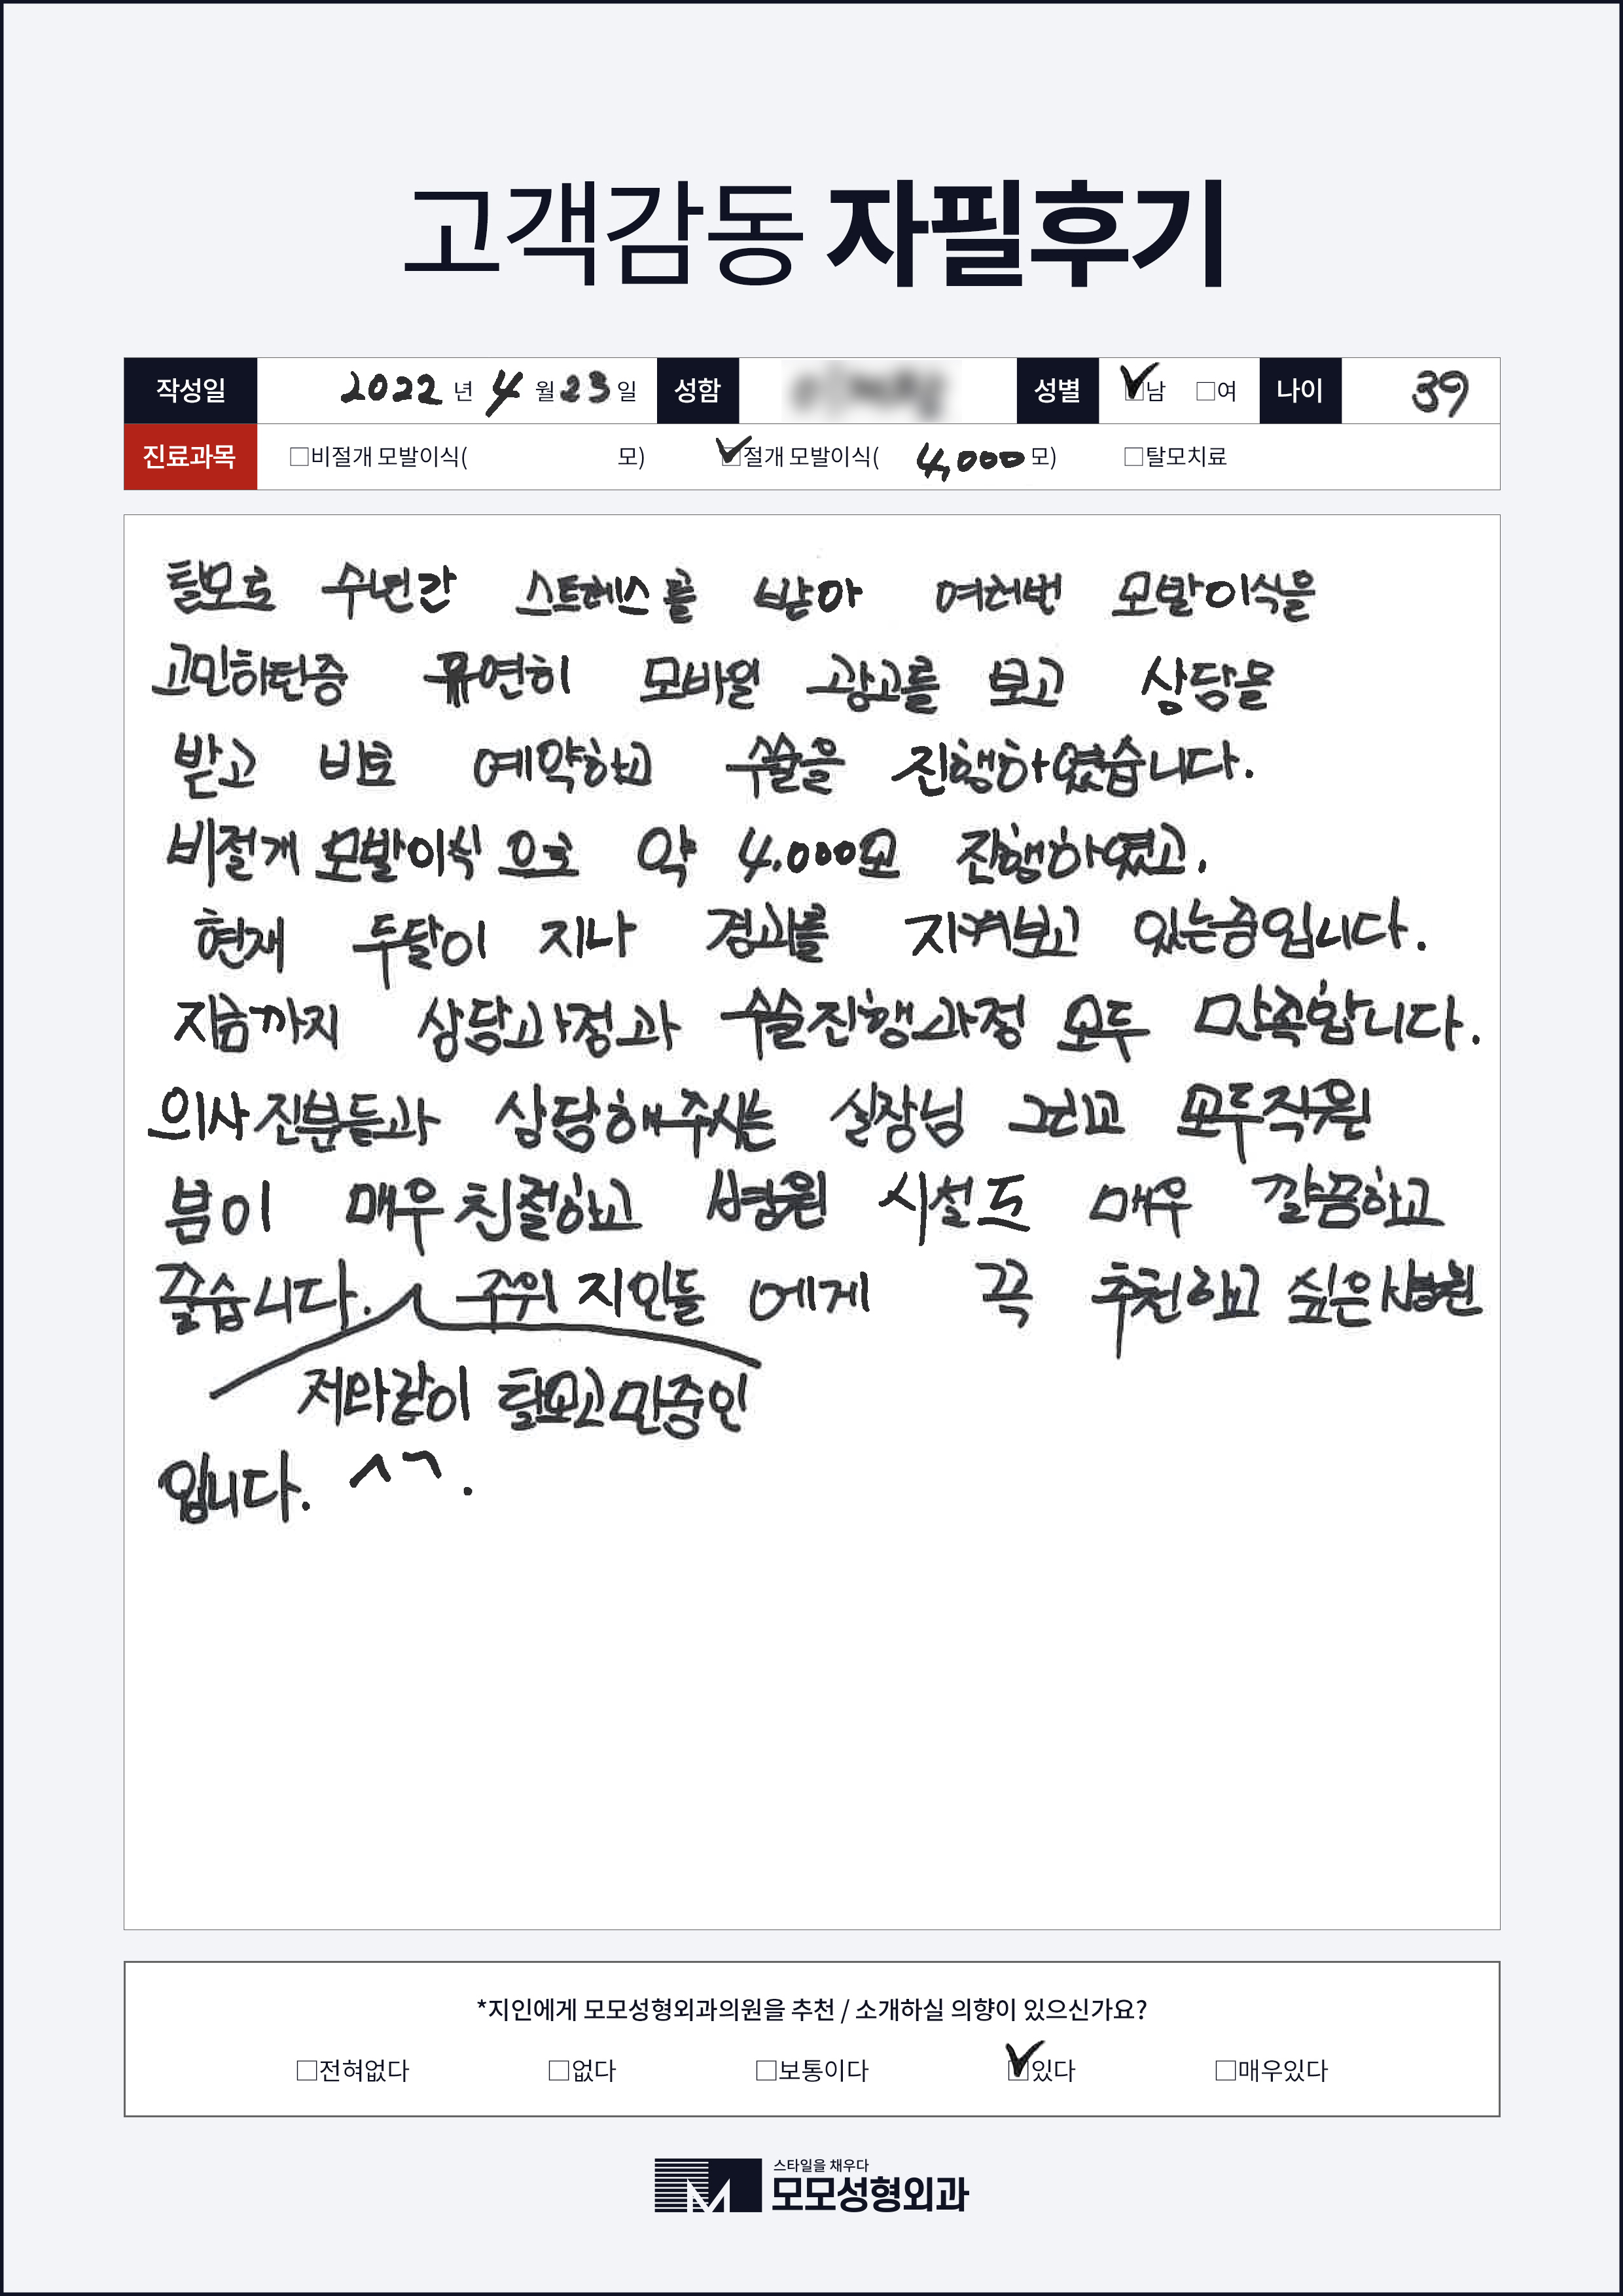 고객감동 자필후기
작성일 2022 년 4 월 23 일 성함 성별 ☑남 □여 나이 39
진료과목 □비절개 모발이식( 모) ☑절개 모발이식( 4,000 모) □탈모치료
탈모로 수년간 스트레스를 받아 여러번 모발이식을
고민하던중 우연히 모바일 광고를 보고 상담을
받고 바로 예약하고 수술을 진행하였습니다.
비절개 모발이식으로 약 4.000모 진행하였고.
현재 두달이 지나 경과를 지켜보고 있는중입니다.
지금까지 상담과정과 수술진행과정 모두 만족합니다.
의사진분들과 상담해주시는 실장님 그리고 모두직원
분이 매우 친절하고 병원 시설도 매우 깔끔하고
좋습니다. 주위 지인들에게 꼭 추천하고 싶은 병원
저와같이 탈모고민중인
입니다. ^^.
*지인에게 모모성형외과의원을 추천 / 소개하실 의향이 있으신가요?
□전혀없다 □없다 □보통이다 ☑있다 □매우있다
스타일을 채우다
모모성형외과